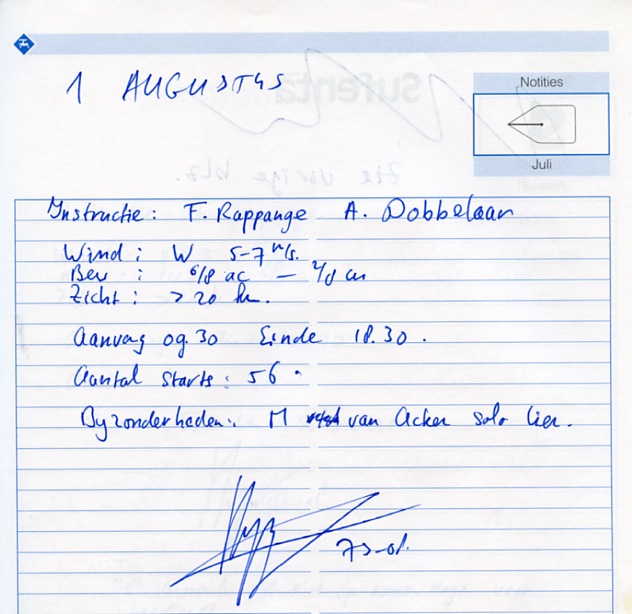 1 AUGUSTUS
Notities
Juli
Instructie: F. Rappange A. Dobbelaar
Wind: W 5-7 m/s.
Bew : 6/8 ac — 2/8 cu
Zicht: > 20 km.
Aanvang 09.30 Einde 18.30.
Aantal starts: 56.
Byzonderheden: M van Acker solo lier.